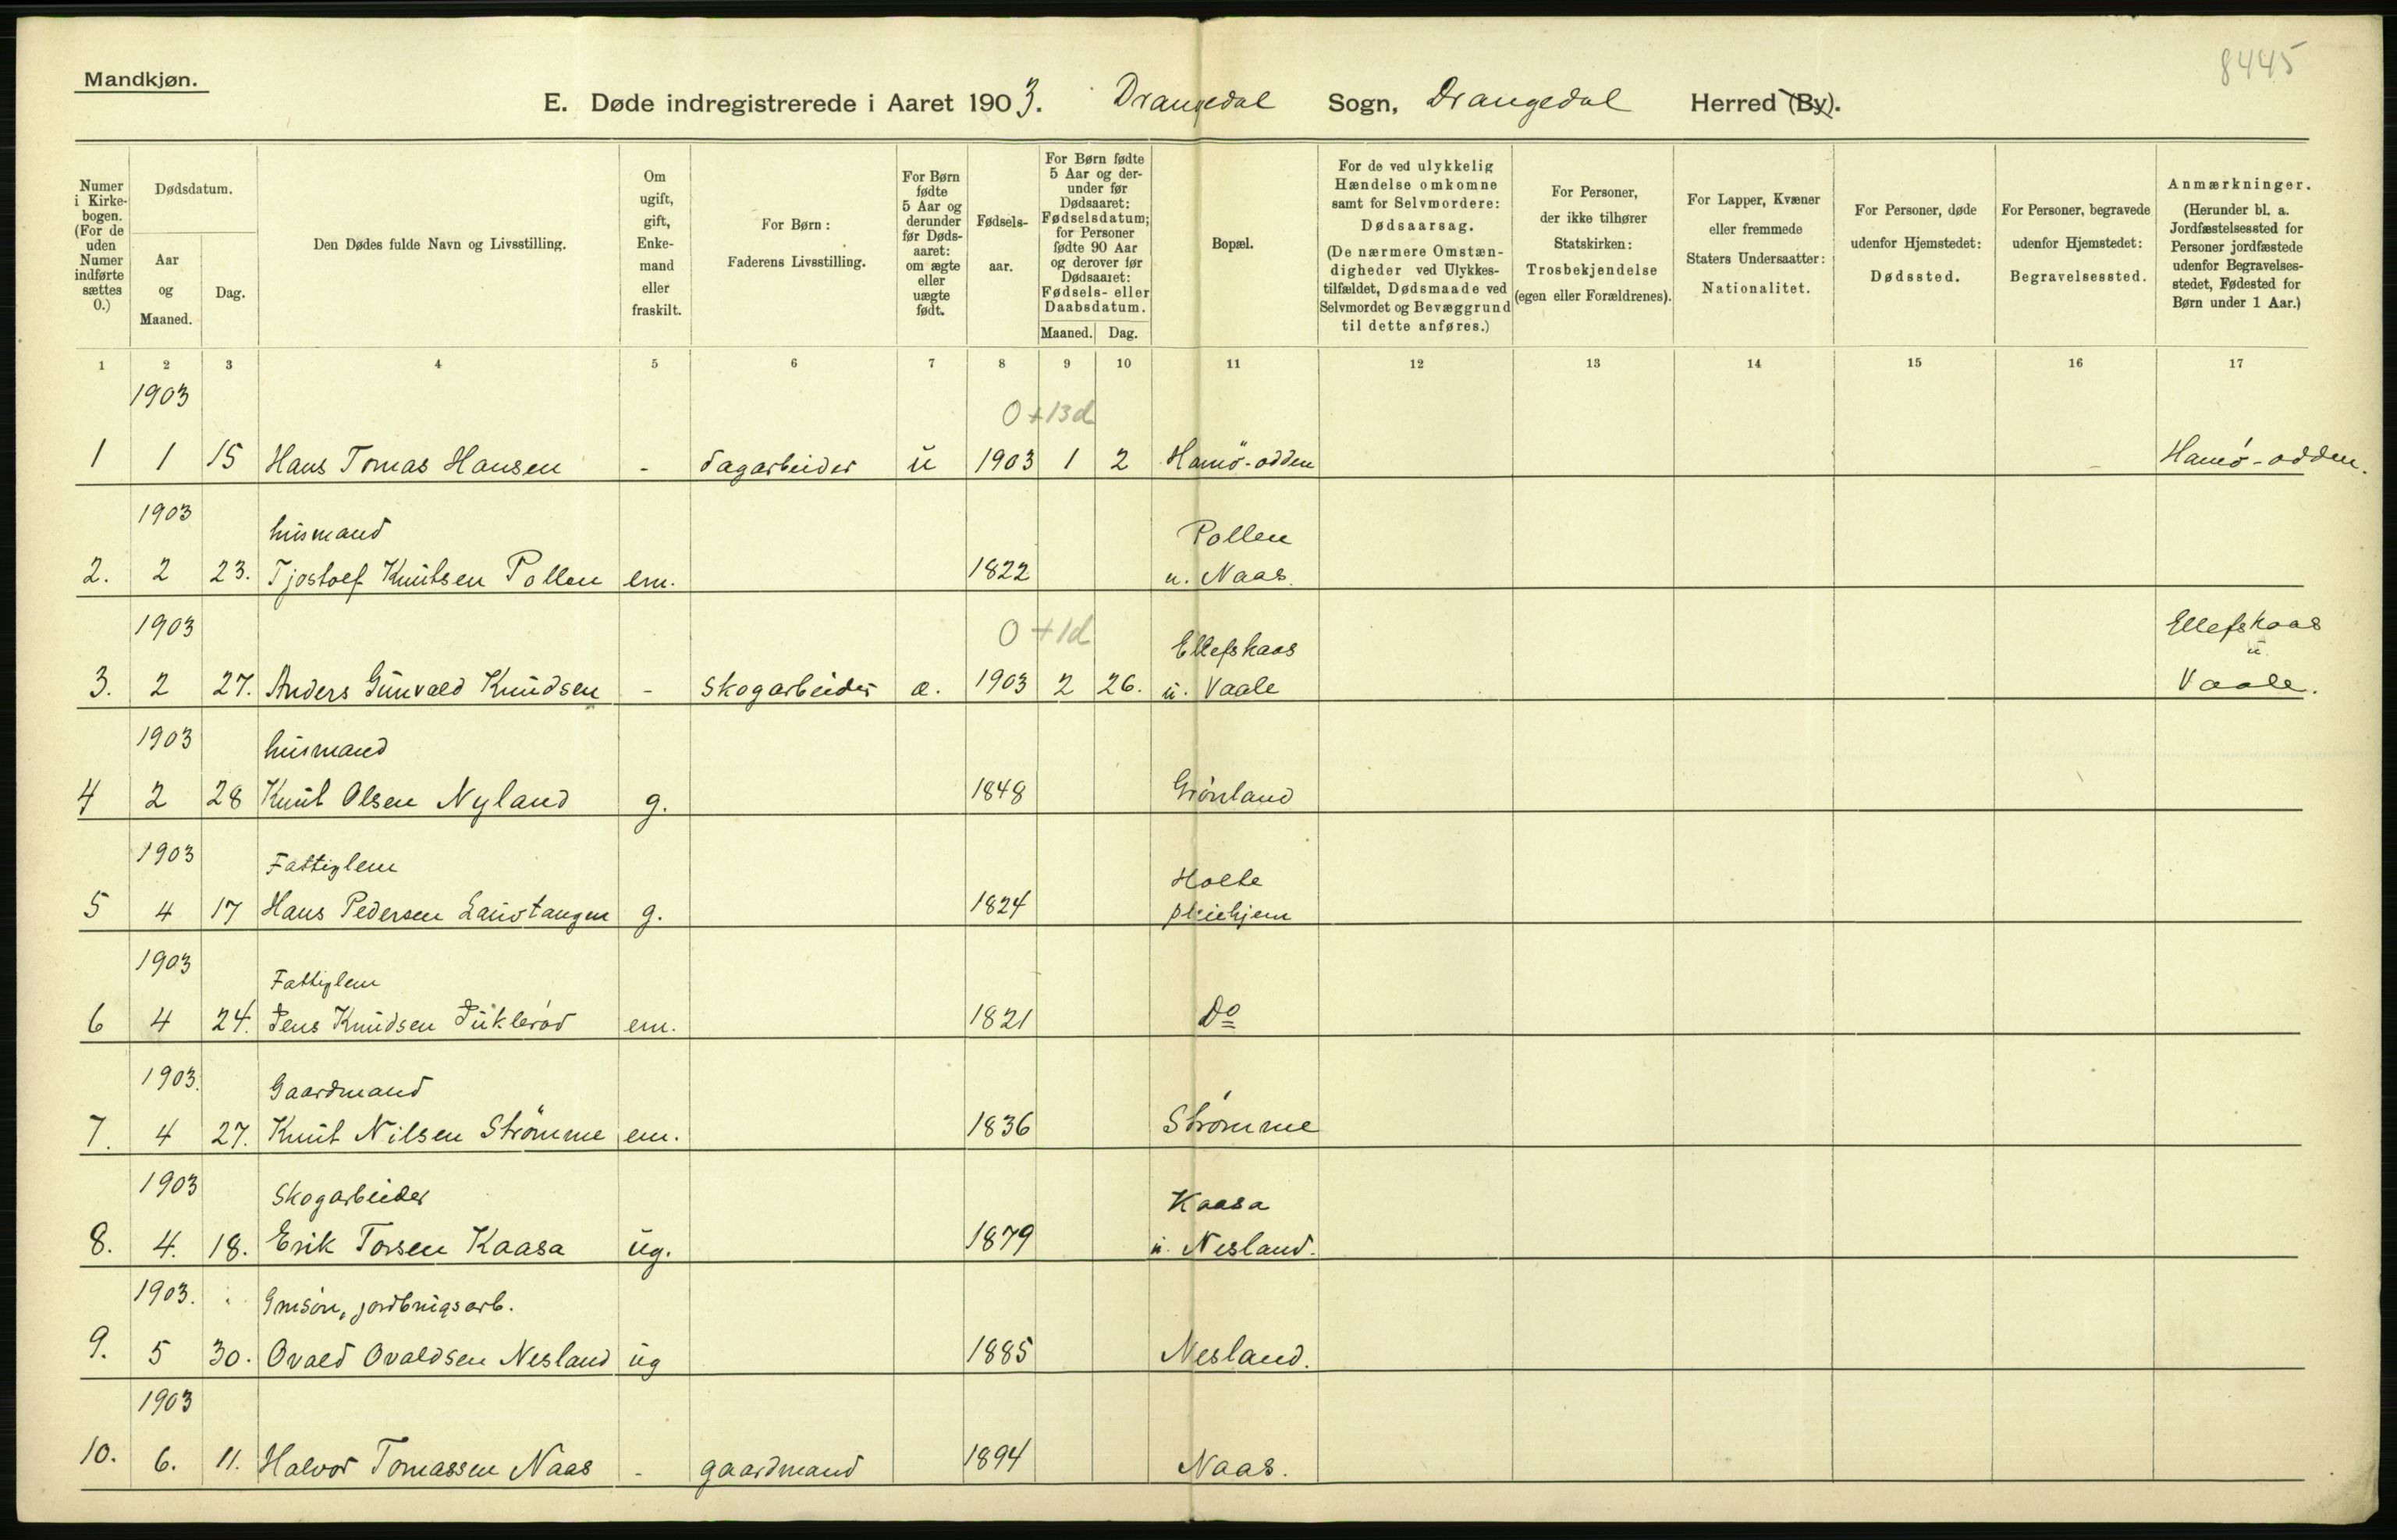 8445
Mandkjøn.
E. Døde indregistrerede i Aaret 1903. Drangedal Sogn, Drangedal Herred (By).
Numer i Kirke-bogen. (For de uden Numer indførte sættes 0.)
Dødsdatum.
Aar og Maaned.
Dag.
Den Dødes fulde Navn og Livsstilling.
Om ugift, gift, Enke-mand eller fraskilt.
For Børn: Faderens Livsstilling.
For Børn fødte 5 Aar og derunder før Døds-aaret: om ægte eller uægte født.
Fødsels-aar.
For Børn fødte 5 Aar og der-under før Dødsaaret: Fødselsdatum; for Personer fødte 90 Aar og derover før Dødsaaret: Fødsels- eller Daabsdatum.
Maaned. Dag.
Bopæl.
For de ved ulykkelig Hændelse omkomne samt for Selvmordere: Dødsaarsag. (De nærmere Omstæn-digheder ved Ulykkes-tilfældet, Dødsmaade ved Selvmordet og Bevæggrund til dette anføres.)
For Personer, der ikke tilhører Statskirken: Trosbekjendelse (egen eller Forældrenes).
For Lapper, Kvæner eller fremmede Staters Undersaatter: Nationalitet.
For Personer, døde udenfor Hjemstedet: Dødssted.
For Personer, begravede udenfor Hjemstedet: Begravelsessted.
Anmærkninger. (Herunder bl. a. Jordfæstelsessted for Personer jordfæstede udenfor Begravelses-stedet, Fødested for Børn under 1 Aar.)
1 2 3 4 5 6 7 8 9 10 11 12 13 14 15 16 17
1903 0+13d
1 1 15 Hans Tomas Hansen - dagarbeider u 1903 1 2 Hamö-odden Hamö-odden.
1903 husmand Pollen
2. 2 23. Tjostolf Knutsen Pollen em. 1822 u. Naas.
1903 0+1d Ellefskaas Ellefskaas u.
3. 2 27. Anders Gunvald Knudsen - Skogarbeider æ. 1903 2 26. u. Vaale Vaale.
1903 husmand
4 2 28 Knut Olsen Nyland g. 1848 Grönland
1903 Fattiglem Holte
5 4 17 Hans Pedersen Laustangen g. 1824 pleiehjem
1903 Fattiglem
6 4 24. Jens Knudsen em. 1821 Do
1903. Gaardmand
7. 4 27. Knut Nilsen Strömme em. 1836 Strömme
1903 Skogarbeider Kaasa
8. 4. 18. Erik Torsen Kaasa ug. 1879 u. Nesland.
1903. Gmsön, jordbrugsarb.
9. 5 30. Ovald Ovaldsen Nesland ug 1885 Nesland.
1903
10. 6. 11. Halvor Tomassen Naas - gaardmand 1894 Naas.